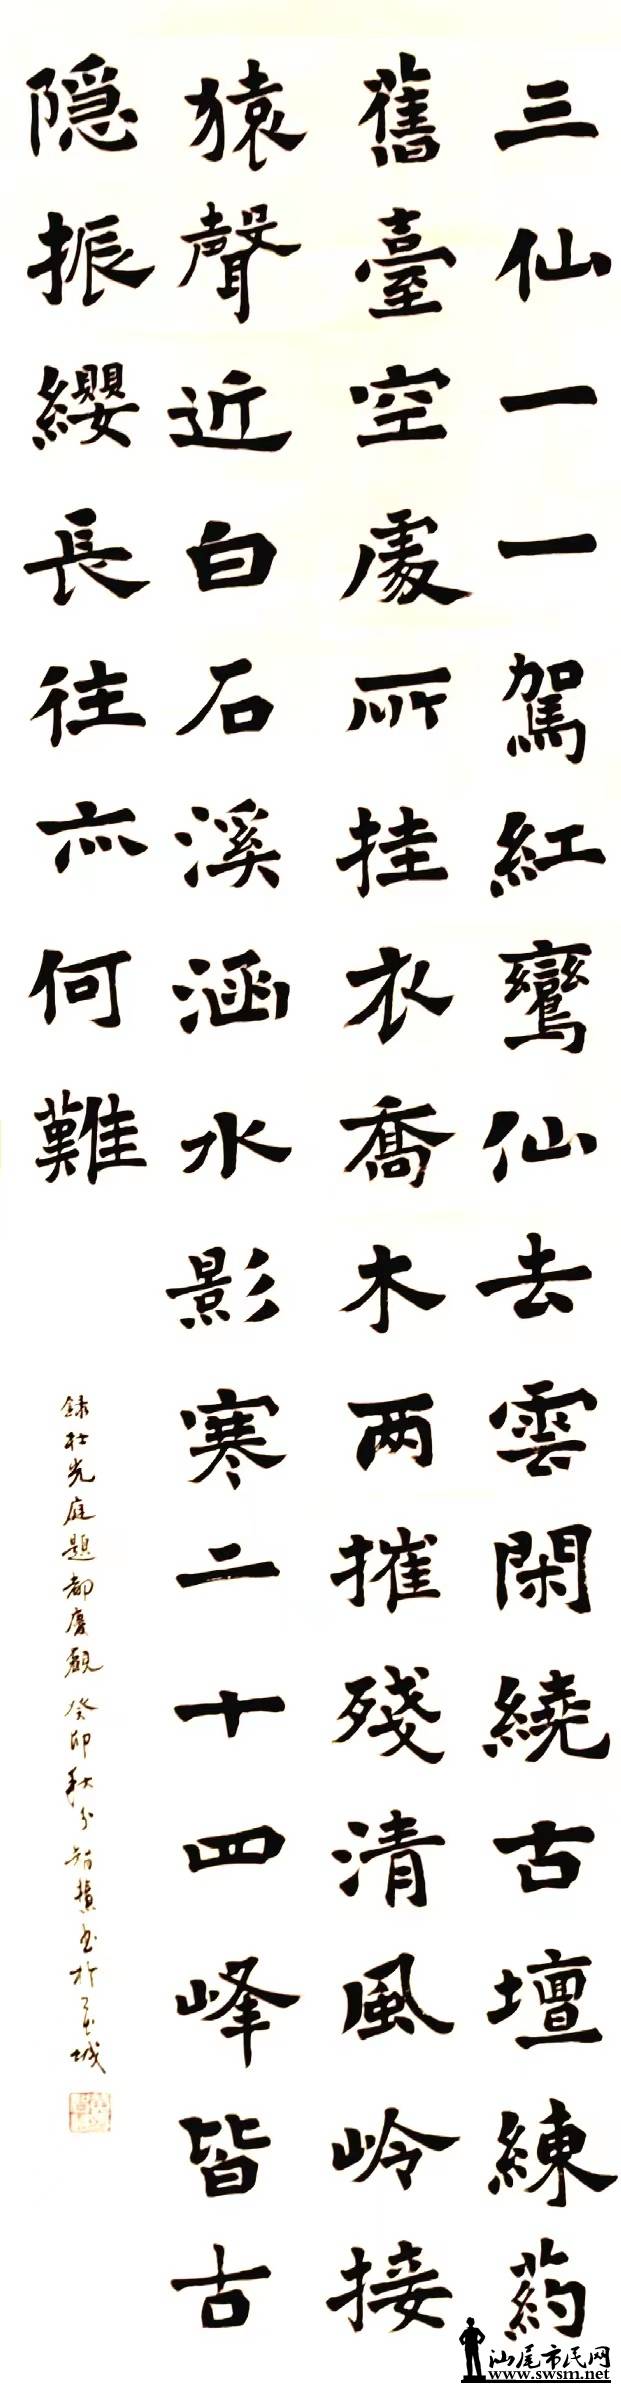 三仙一一駕紅鸞仙去雲閑繞古壇練葯
舊臺空處所挂衣喬木两摧殘清風岭接
猿聲近白石溪涵水影寒二十四峰皆古
隐振纓長往亦何難
録杜光庭題都慶觀癸卯秋分智撰书於
城
汕尾市民网
www.swsm.net